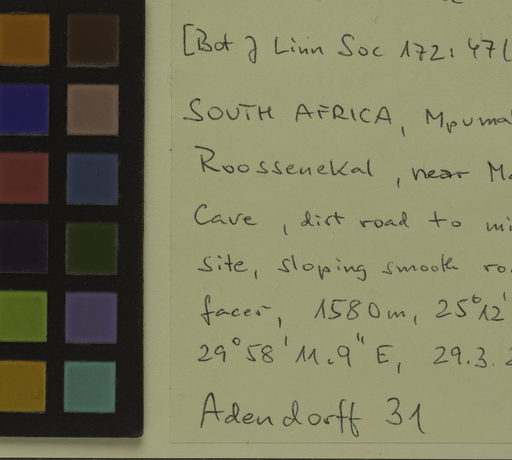 [Bot J Linn Soc 172: 47
SOUTH AFRICA, Mpuma
Roossenekal, near Ma
Cave, dirt road to mi
site, sloping smooth ro
faces, 1580m, 25°12'
29°58'11.9"E, 29.3.
Adendorff 31